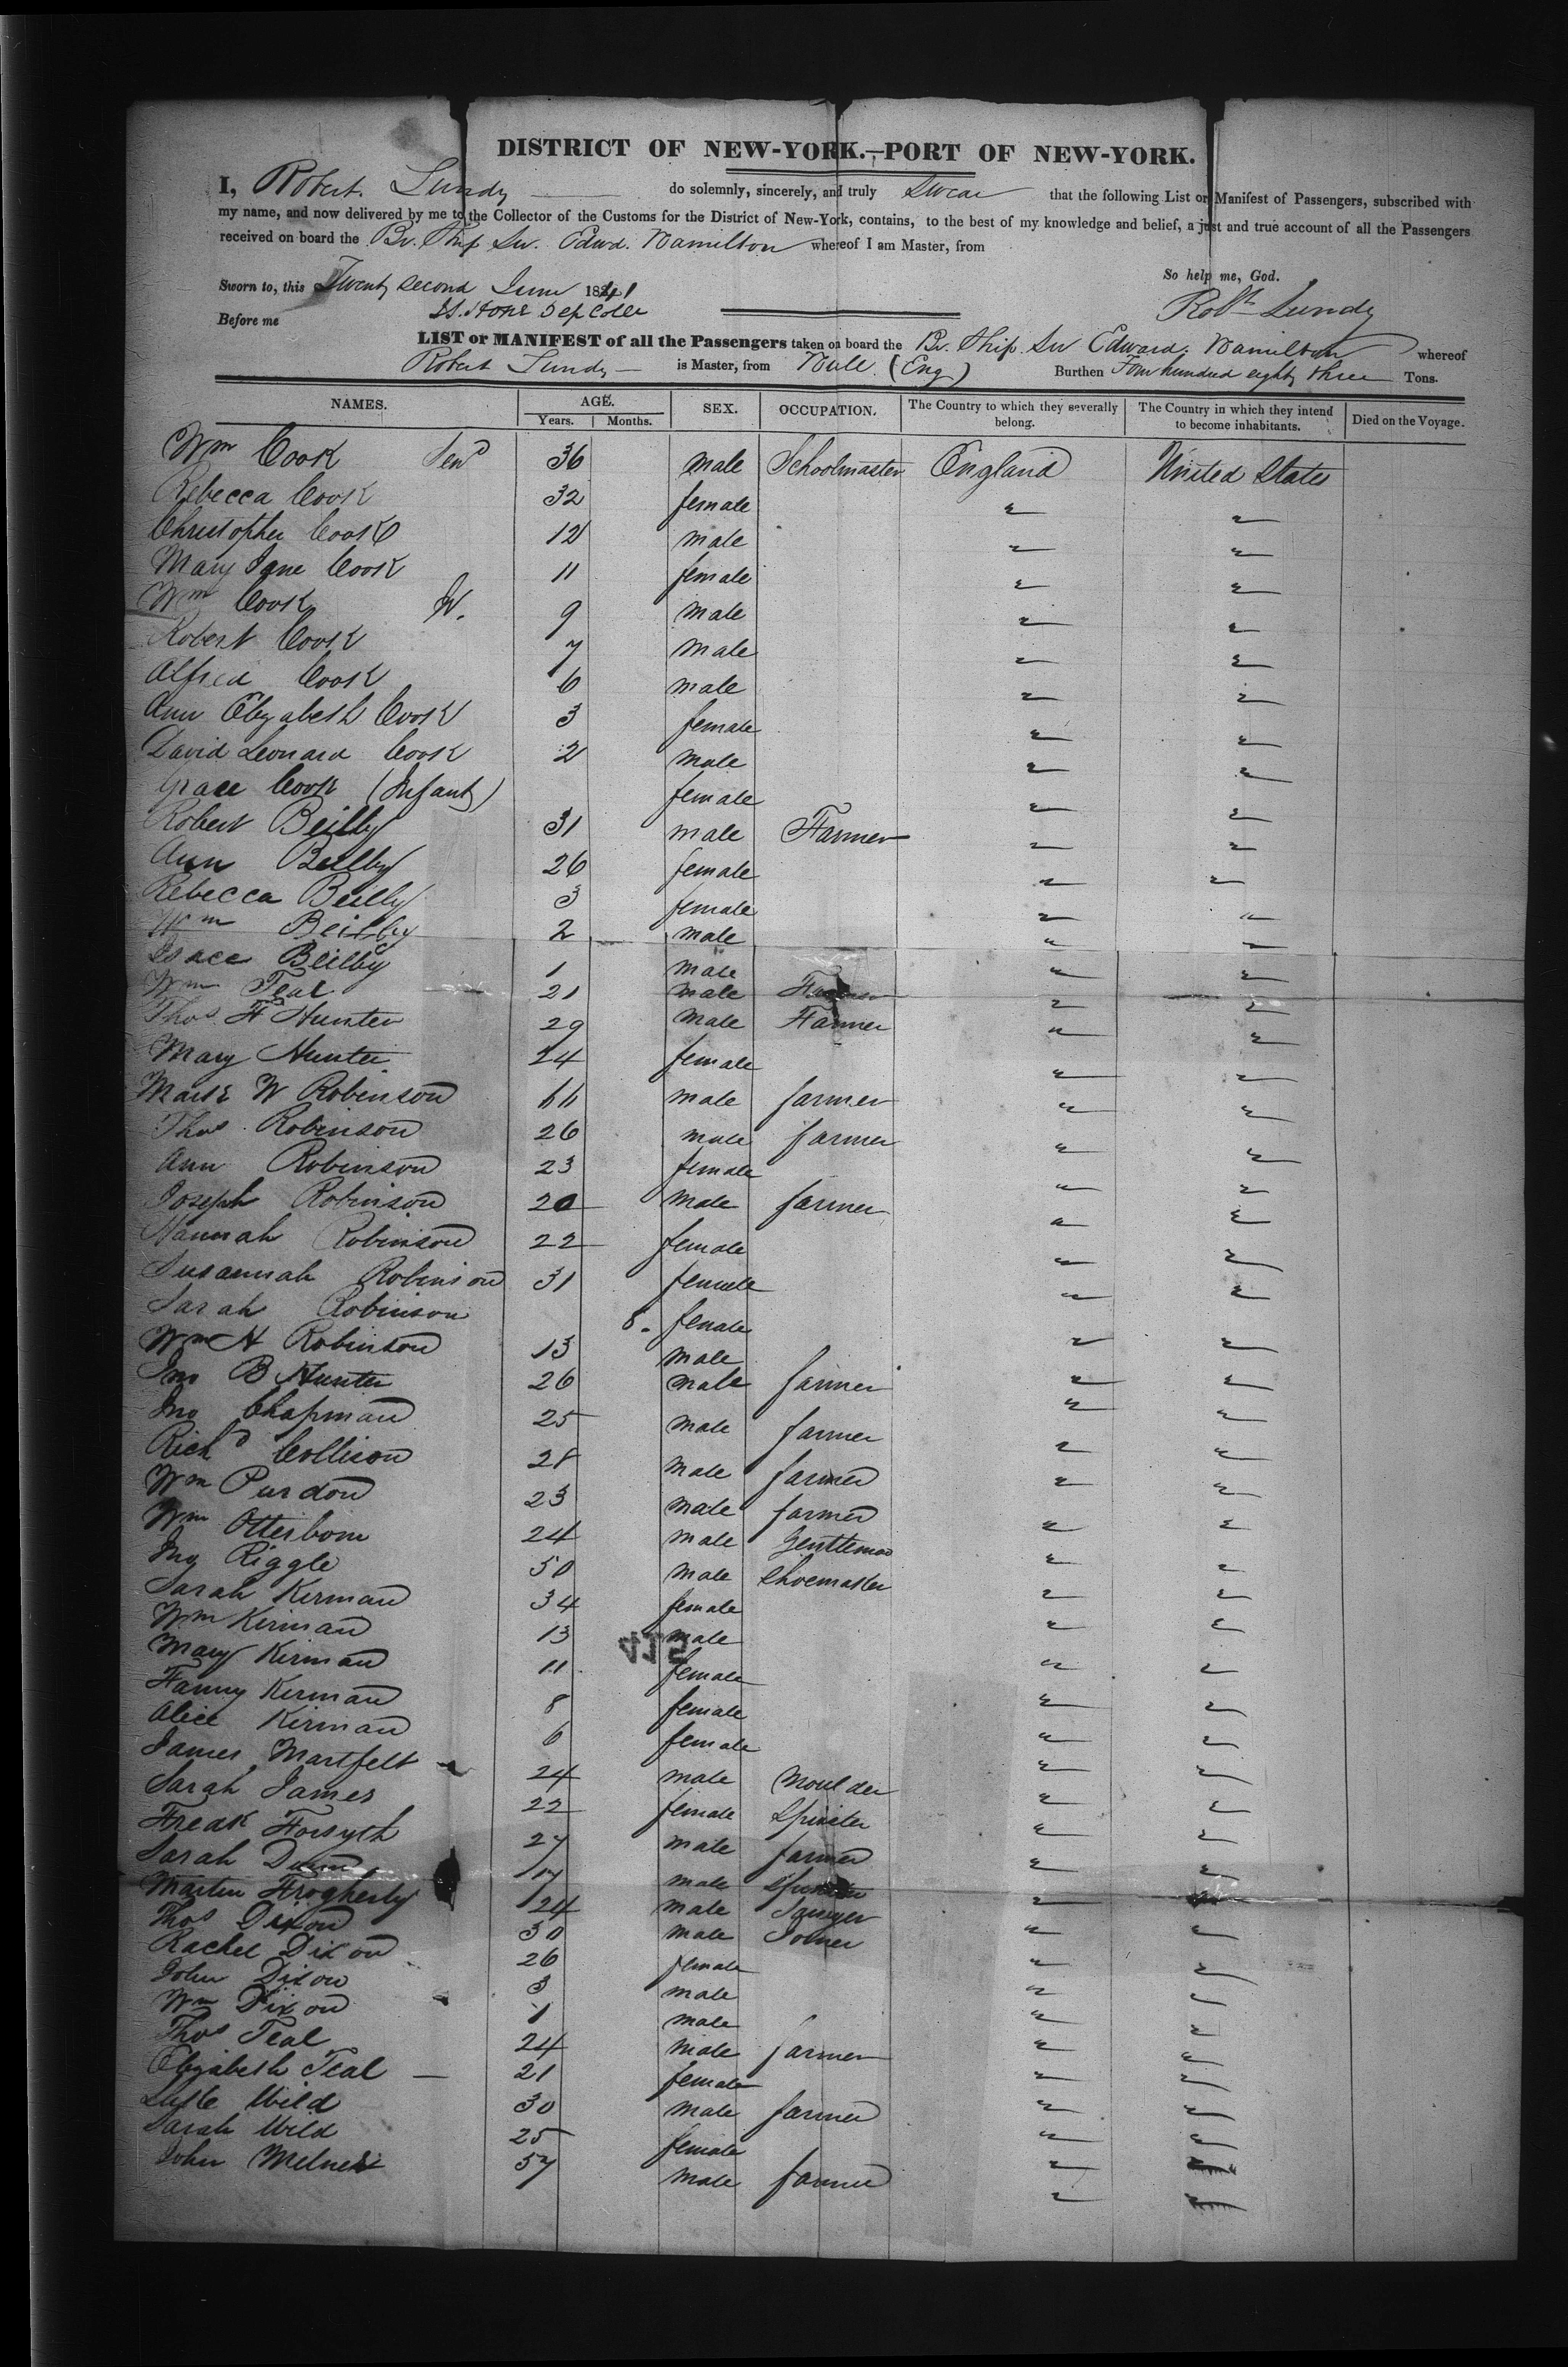 DISTRICT OF NEW-YORK.—PORT OF NEW-YORK.
I, Robert Lundy do solemnly, sincerely, and truly swear that the following List or Manifest of Passengers, subscribed with
my name, and now delivered by me to the Collector of the Customs for the District of New-York, contains, to the best of my knowledge and belief, a just and true account of all the Passengers
received on board the Br. Ship Sir Edwd. Hamilton whereof I am Master, from
So help me, God.
Sworn to, this Twenty second June 1841
Robt Lundy
Before me Dep Coll
LIST or MANIFEST of all the Passengers taken on board the Br. Ship Sir Edward Hamilton whereof
Robert Lundy is Master, from Hull (Eng) Burthen Four hundred eighty three Tons.
NAMES. AGE. Years. Months. SEX. OCCUPATION. The Country to which they severally belong. The Country in which they intend to become inhabitants. Died on the Voyage.
Wm Cook Senr 36 male Schoolmaster England United States
Rebecca Cook 32 female " "
Christopher Cook 12 male " "
Mary Jane Cook 11 female " "
Wm Cook Jr. 9 male " "
Robert Cook 7 male " "
Alfred Cook 6 male " "
Ann Elizabeth Cook 3 female " "
David Leonard Cook 2 male " "
Grace Cook (Infant) female " "
Robert Beilby 31 male Farmer " "
Ann Beilby 26 female " "
Rebecca Beilby 3 female " "
Wm Beilby 2 male " "
Isace Beilby 1 male " "
Wm Teal 21 male Farmer " "
Thos H Hunter 29 male Farmer " "
Mary Hunter 24 female " "
Mark W Robinson 61 male farmer " "
Thos Robinson 26 male farmer " "
Ann Robinson 23 female " "
Joseph Robinson 20 male farmer " "
Hannah Robinson 22 female " "
Susannah Robinson 31 female " "
Sarah Robinson 8. female " "
Wm H Robinson 13 male " "
Jno B Hunter 26 male farmer " "
Jno Chapman 25 male farmer " "
Richd Collison 28 male farmer " "
Wm Purdon 23 male farmer " "
Wm Otterbom 24 male Gentleman " "
Jno Riggle 50 male Shoemaker " "
Sarah Kirman 34 female " "
Wm Kirman 13 male " "
415
Mary Kirman 11 female " "
Fanny Kirman 8 female " "
Alice Kirman 6 female " "
James Martfelt 24 male Moulder " "
Sarah James 22 female Spinster " "
Freak Forsyth 27 male farmer " "
Sarah Dunn 17 male Spinster " "
Martin Frogherby 24 male Sawyer " "
Thos Dixon 30 male Joiner " "
Rachel Dixon 26 female " "
John Dixon 3 male " "
Wm Dixon 1 male " "
Thos Teal 24 male farmer " "
Elizabeth Teal 21 female " "
Luke Wild 30 male farmer " "
Sarah Wild 25 female " "
John Melner 57 male farmer " "